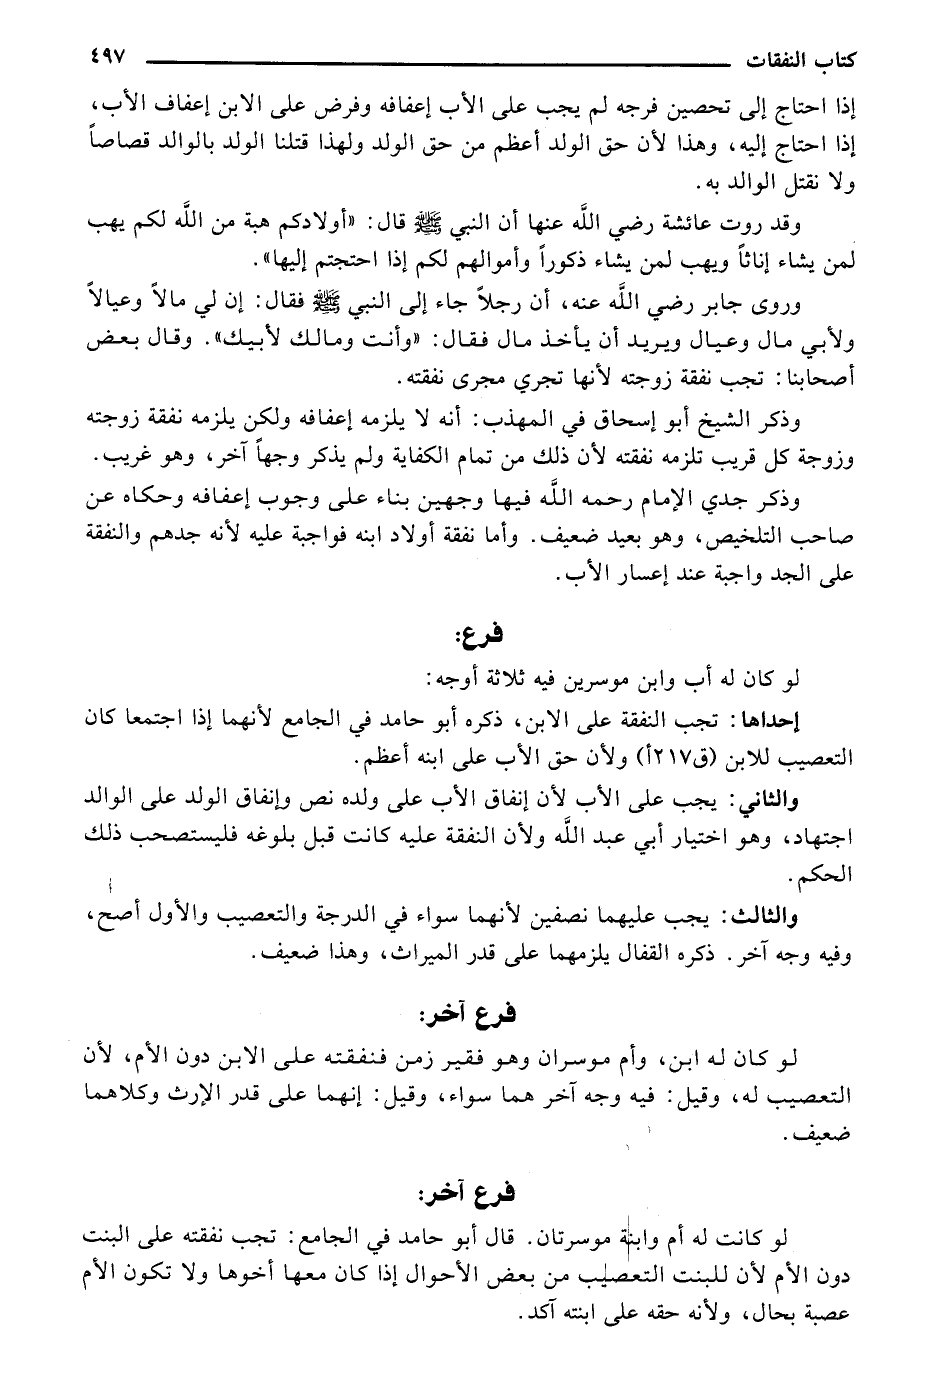 كتاب النفقات ٤٩٧
إذا احتاج إلى تحصين فرجه لم يجب على الأب إعفافه وفرض على الابن إعفاف الأب،
إذا احتاج إليه، وهذا لأن حق الولد أعظم من حق الولد ولهذا قتلنا الولد بالوالد قصاصاً
ولا نقتل الوالد به.
وقد روت عائشة رضي اللَّه عنها أن النبي ﷺ قال: «أولادكم هبة من اللَّه لكم يهب
لمن يشاء إناثاً ويهب لمن يشاء ذكوراً وأموالهم لكم إذا احتجتم إليها».
وروى جابر رضي اللَّه عنه، أن رجلاً جاء إلى النبي ﷺ فقال: إن لي مالاً وعيالاً
ولأبي مال وعيال ويريد أن يأخذ مال فقال: «وأنت ومالك لأبيك». وقال بعض
أصحابنا: تجب نفقة زوجته لأنها تجري مجرى نفقته.
وذكر الشيخ أبو إسحاق في المهذب: أنه لا يلزمه إعفافه ولكن يلزمه نفقة زوجته
وزوجة كل قريب تلزمه نفقته لأن ذلك من تمام الكفاية ولم يذكر وجهاً آخر، وهو غريب.
وذكر جدي الإمام رحمه اللَّه فيها وجهين بناء على وجوب إعفافه وحكاه عن
صاحب التلخيص، وهو بعيد ضعيف. وأما نفقة أولاد ابنه فواجبة عليه لأنه جدهم والنفقة
على الجد واجبة عند إعسار الأب.
فرع:
لو كان له أب وابن موسرين فيه ثلاثة أوجه:
إحداها: تجب النفقة على الابن، ذكره أبو حامد في الجامع لأنهما إذا اجتمعا كان
التعصيب للابن (ق٢١٧أ) ولأن حق الأب على ابنه أعظم.
والثاني: يجب على الأب لأن إنفاق الأب على ولده نص وإنفاق الولد على الوالد
اجتهاد، وهو اختيار أبي عبد اللَّه ولأن النفقة عليه كانت قبل بلوغه فليستصحب ذلك
الحكم.
والثالث: يجب عليهما نصفين لأنهما سواء في الدرجة والتعصيب والأول أصح،
وفيه وجه آخر. ذكره القفال يلزمهما على قدر الميراث، وهذا ضعيف.
فرع آخر:
لو كان له ابن، وأم موسران وهو فقير زمن فنفقته على الابن دون الأم، لأن
التعصيب له، وقيل: فيه وجه آخر هما سواء، وقيل: إنهما على قدر الإرث وكلاهما
ضعيف.
فرع آخر:
لو كانت له أم وابنة موسرتان. قال أبو حامد في الجامع: تجب نفقته على البنت
دون الأم لأن للبنت التعصيب من بعض الأحوال إذا كان معها أخوها ولا تكون الأم
عصبة بحال، ولأنه حقه على ابنته آكد.